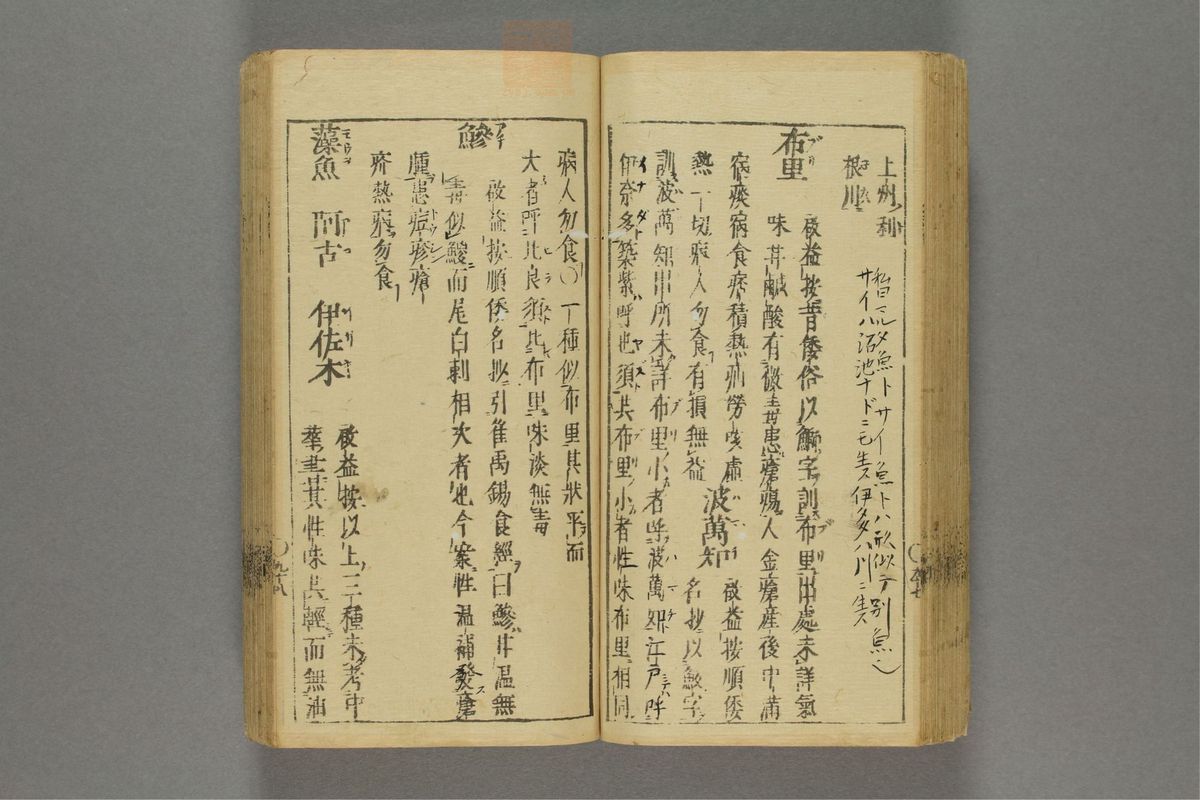 上州利
根川
サイハ沼池ナドニモ生ス伊多ハ川ニ生ス
布里
啟益按昔倭俗以鰤字訓布里出處未詳氣
味甘鹹酸有微毒患瘡瘍人金瘡産後中満
宿痰病食痞積熱労咳虚
熱一切病人勿食有損無益
波萬知
啟益按順倭
名抄以鰒字
訓波萬知出所未詳布里小者呼波萬知江戸呼
伊奈多築紫呼也須共布里小者性味布里相同
病人勿食〇一種似布里其狀平而
大者呼比良須比布里味淡無毒
鰺
啟益按順倭名抄引崔禹錫食經曰鰺甘温無
毒似鯼而尾白刺相次者也今案性温補發瘡
腫患痘疹瘡
疥熱病勿食
藻魚 阿古 伊佐木
啟益按以上三種未考中
華書其性味共輕而無油
九十八